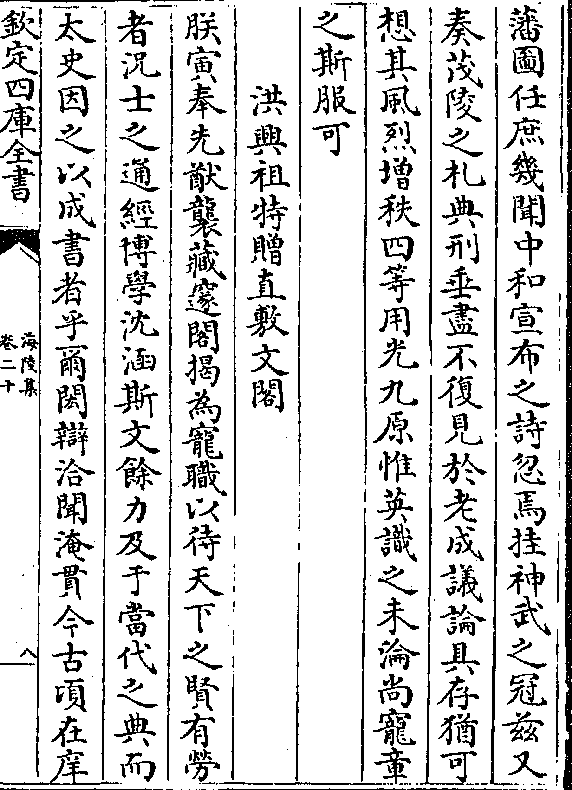 藩圖任庶幾聞中和宣布之詩忽焉挂神武之冠兹又
奏茂陵之札典刑垂盡不復見於老成議論具存猶可
想其風烈增秩四等用光九原惟英識之未淪尚寵章
之斯服可
洪興祖特贈直敷文閣
朕寅奉先猷襲藏邃閣揭為寵職以待天下之賢有勞
者況士之通經博學沈涵斯文餘力及于當代之典而
太史因之以成書者乎爾閎辯洽聞淹貫今古頃在庠
欽定四庫全書
海陵集
卷二十
八